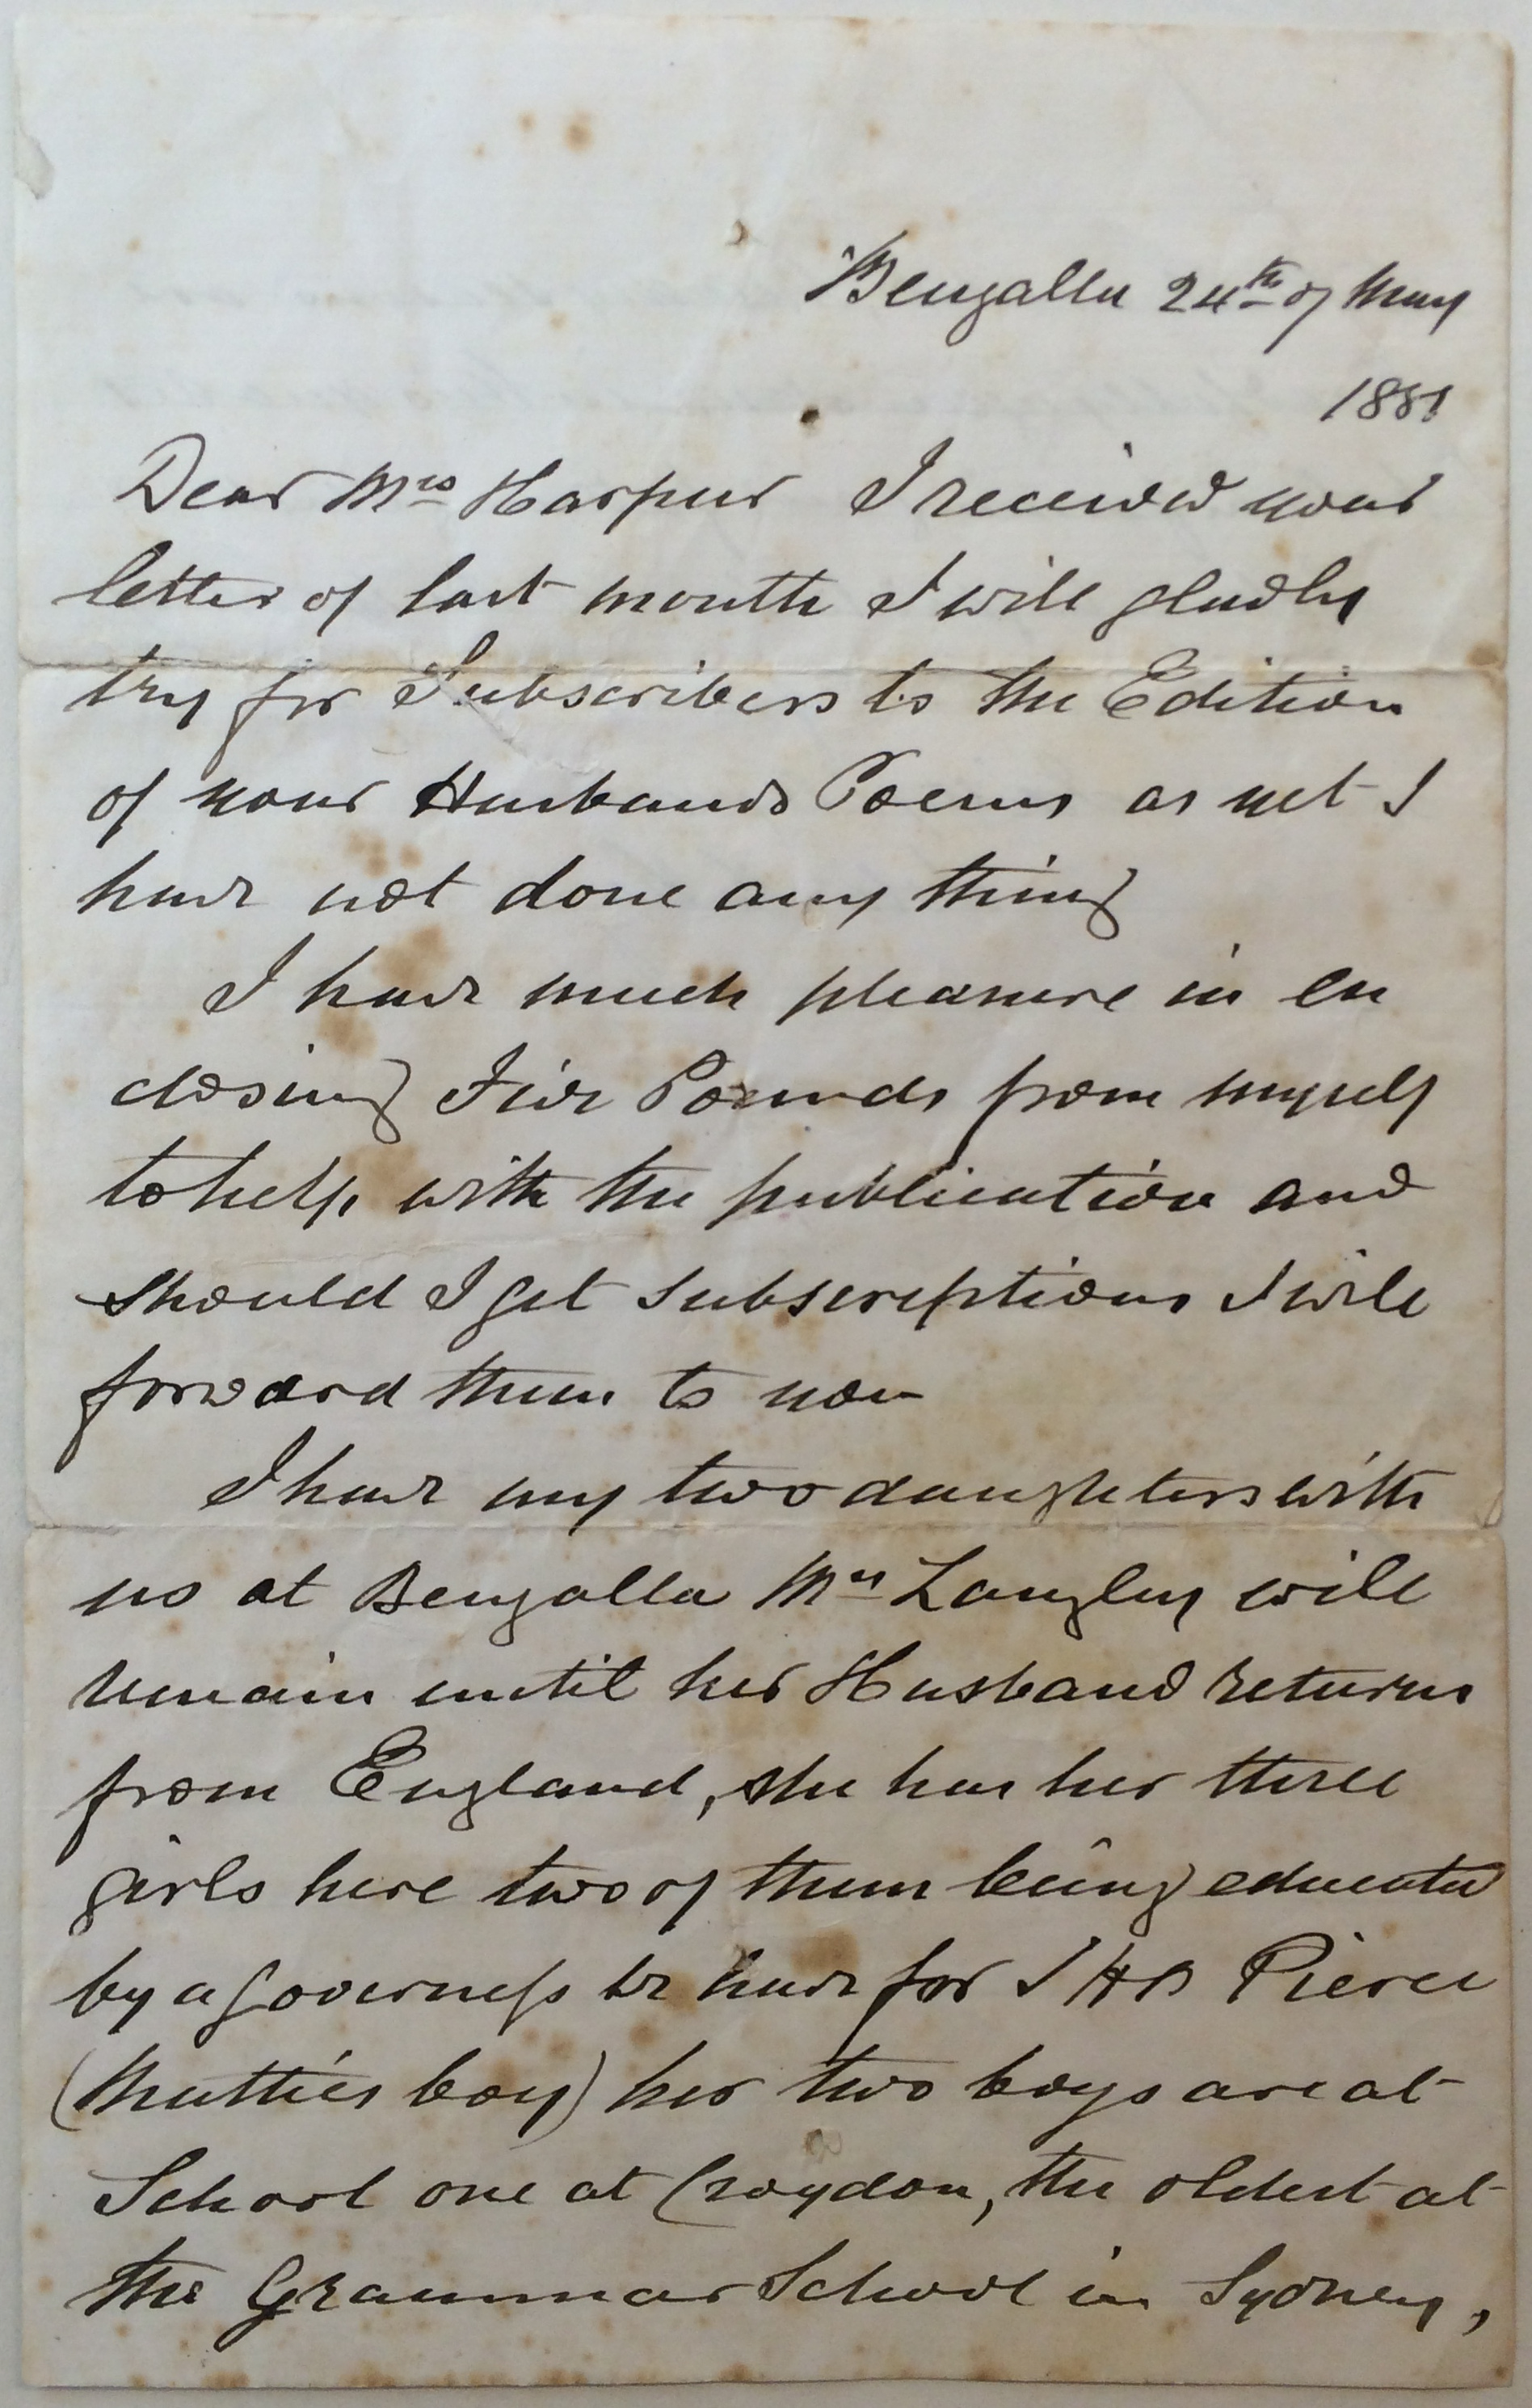 Bengalla 24th of May
1881
Dear Mrs Harpur I received your
letter of last month I will gladly
try for Subscribers to the Edition
of your Husbands Poems as yet I
have not done any thing
I have much pleasure in en
closing Five Pounds from myself
to help with the publication and
should I get subscriptions I will
forward them to you
I have my two daughters with
us at Bengalla Mrs Langley will
remain until her Husband returns
from England, she has her three
girls here two of them being educated
by a Governess we have for J H B Pierce
(Mattie's boy) her two boys are at
School one at Croydon, the oldest at
the Grammar School in Sydney,